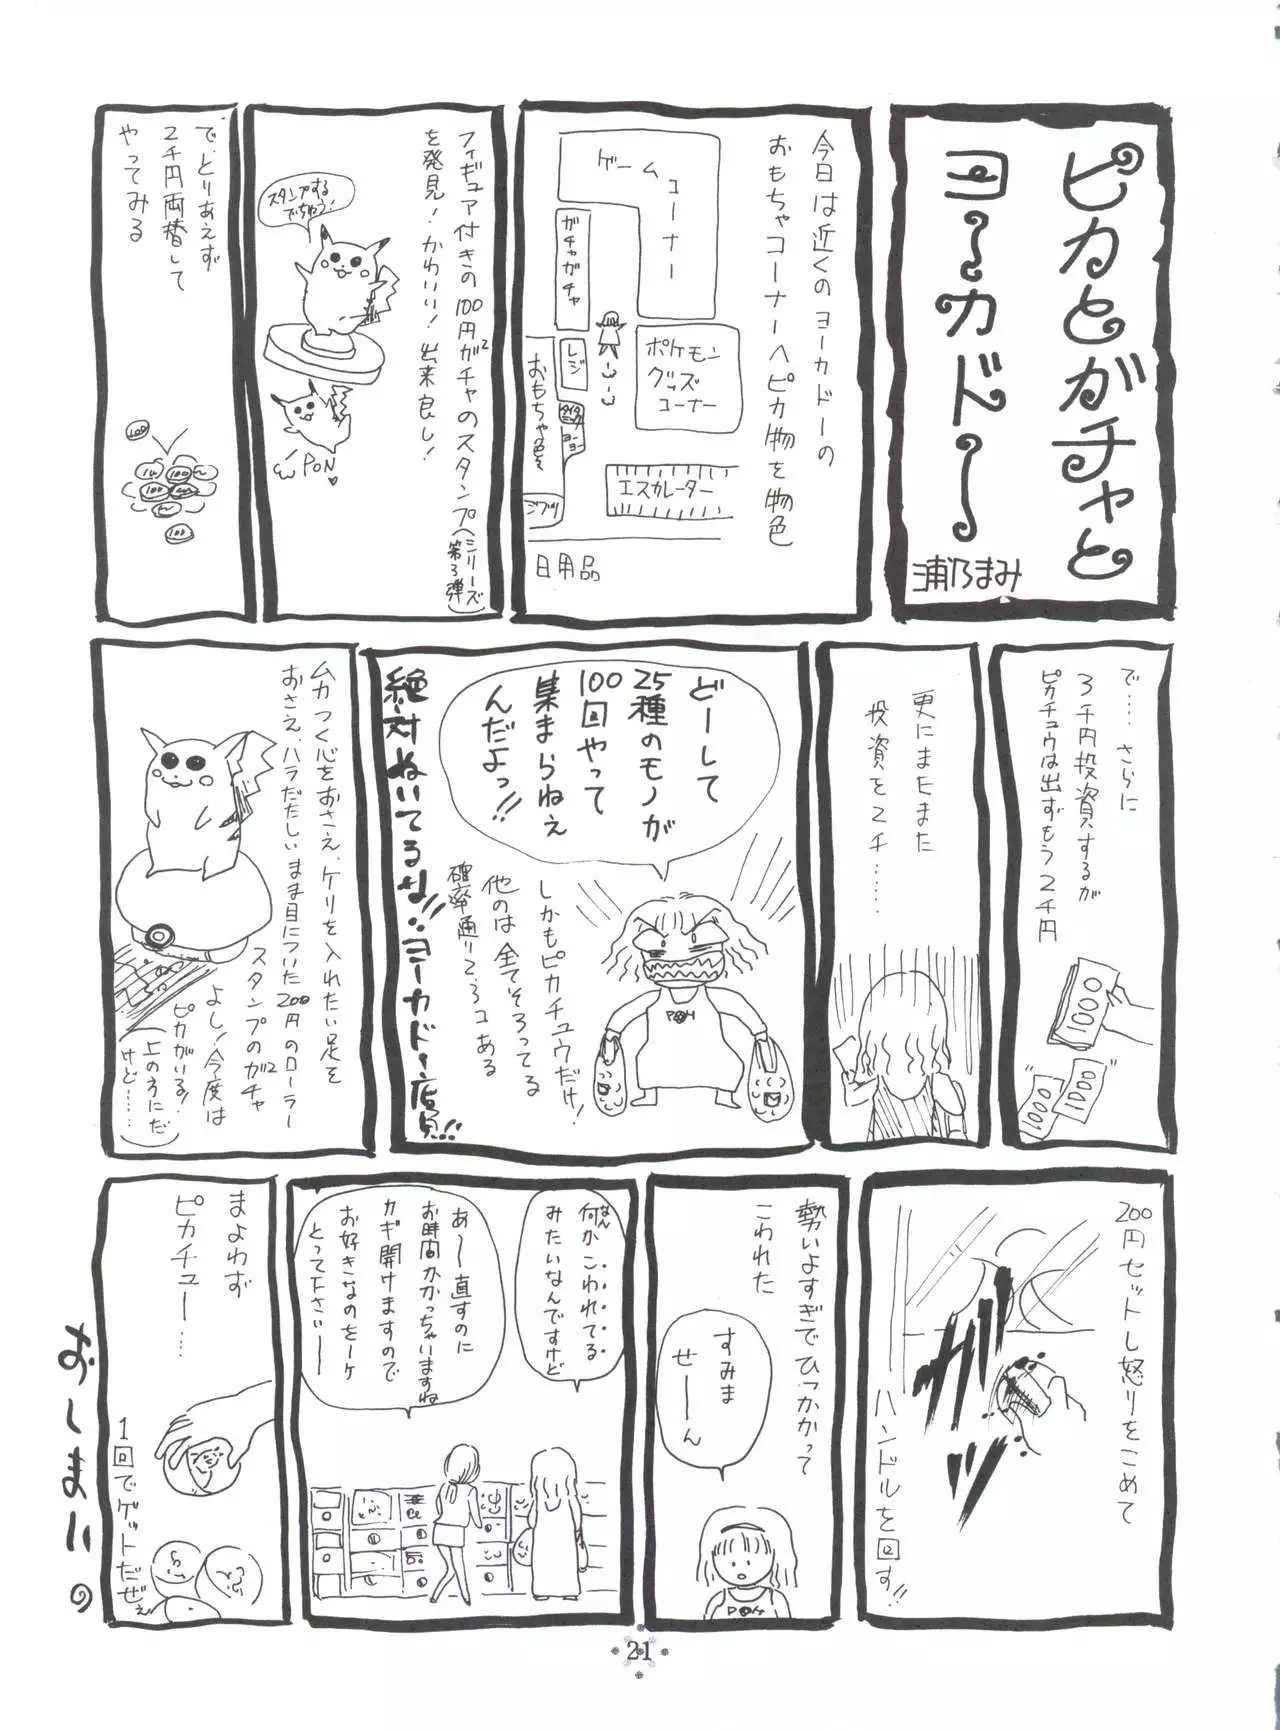 ピカとガチャと
ヨーカドー
浦乃まみ
今日は近くのヨーカドーの
おもちゃコーナーへピカ物を物色
ゲームコーナー
ガチャガチャ
レジ
ポケモン
グッズ
コーナー
おもちゃ色々
ヨーヨー
ジブリ
エスカレーター
日用品
フィギュア付きの100円ガチャ2のスタンプ(シリーズ第3弾)
を発見!かわいい!出来良し!
スタンプする
でちゅう!
PON
で、とりあえず
2千円両替して
やってみる
100
100
100
100
で……さらに
3千円投資するが
ピカチュウは出ずもう2千円
1000
1000
1000
更にまたまた
投資を2千……
どーして
25種のモノが
100回やって
集まらねぇ
んだよっ!!
しかもピカチュウだけ!
他のは全てそろってる
確率通り2、3コある
絶対ぬいてるな!!ヨーカドー店員!!
ムカつく心をおさえ、ケリを入れたい足を
おさえ、ハラだたしいまま目についた200円のローラー
スタンプのガチャ2
よし!今度は
ピカがいる!
(上の方にだ
けど……)
200円セットし怒りをこめて
ハンドルを回す!!
勢いよすぎでひっかかって
こわれた
すみま
せーーん
何かこわれてる
なん
みたいなんですけど
あ〜直すのに
お時間かかっちゃいますね
カギ開けますので
お好きなのをーケ
とって下さいー
まよわず
ピカチュー…
1回でゲットだぜぇ
おしまいの
21